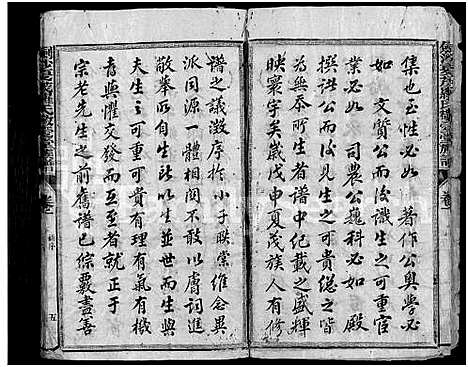 集也玉性必如　著作公奧學必
如　文定公而後識生之可重官
業必如　司農公巍科必如　殿
撰洪　尚公而後見生之可貴總之皆
為無忝所生者譜中紀載之盛輝
映寰宇矣歲戊申夏茂族人有修
譜之議激序於小子映棠維念異
派同源一體相関不敢以膚詞進
敬舉所自生所以生並世而生與
夫生生之可貴有理有氣有機
者與懼交發而互至者就正于
宗老先生之前舊譜已綜覈盡善
五